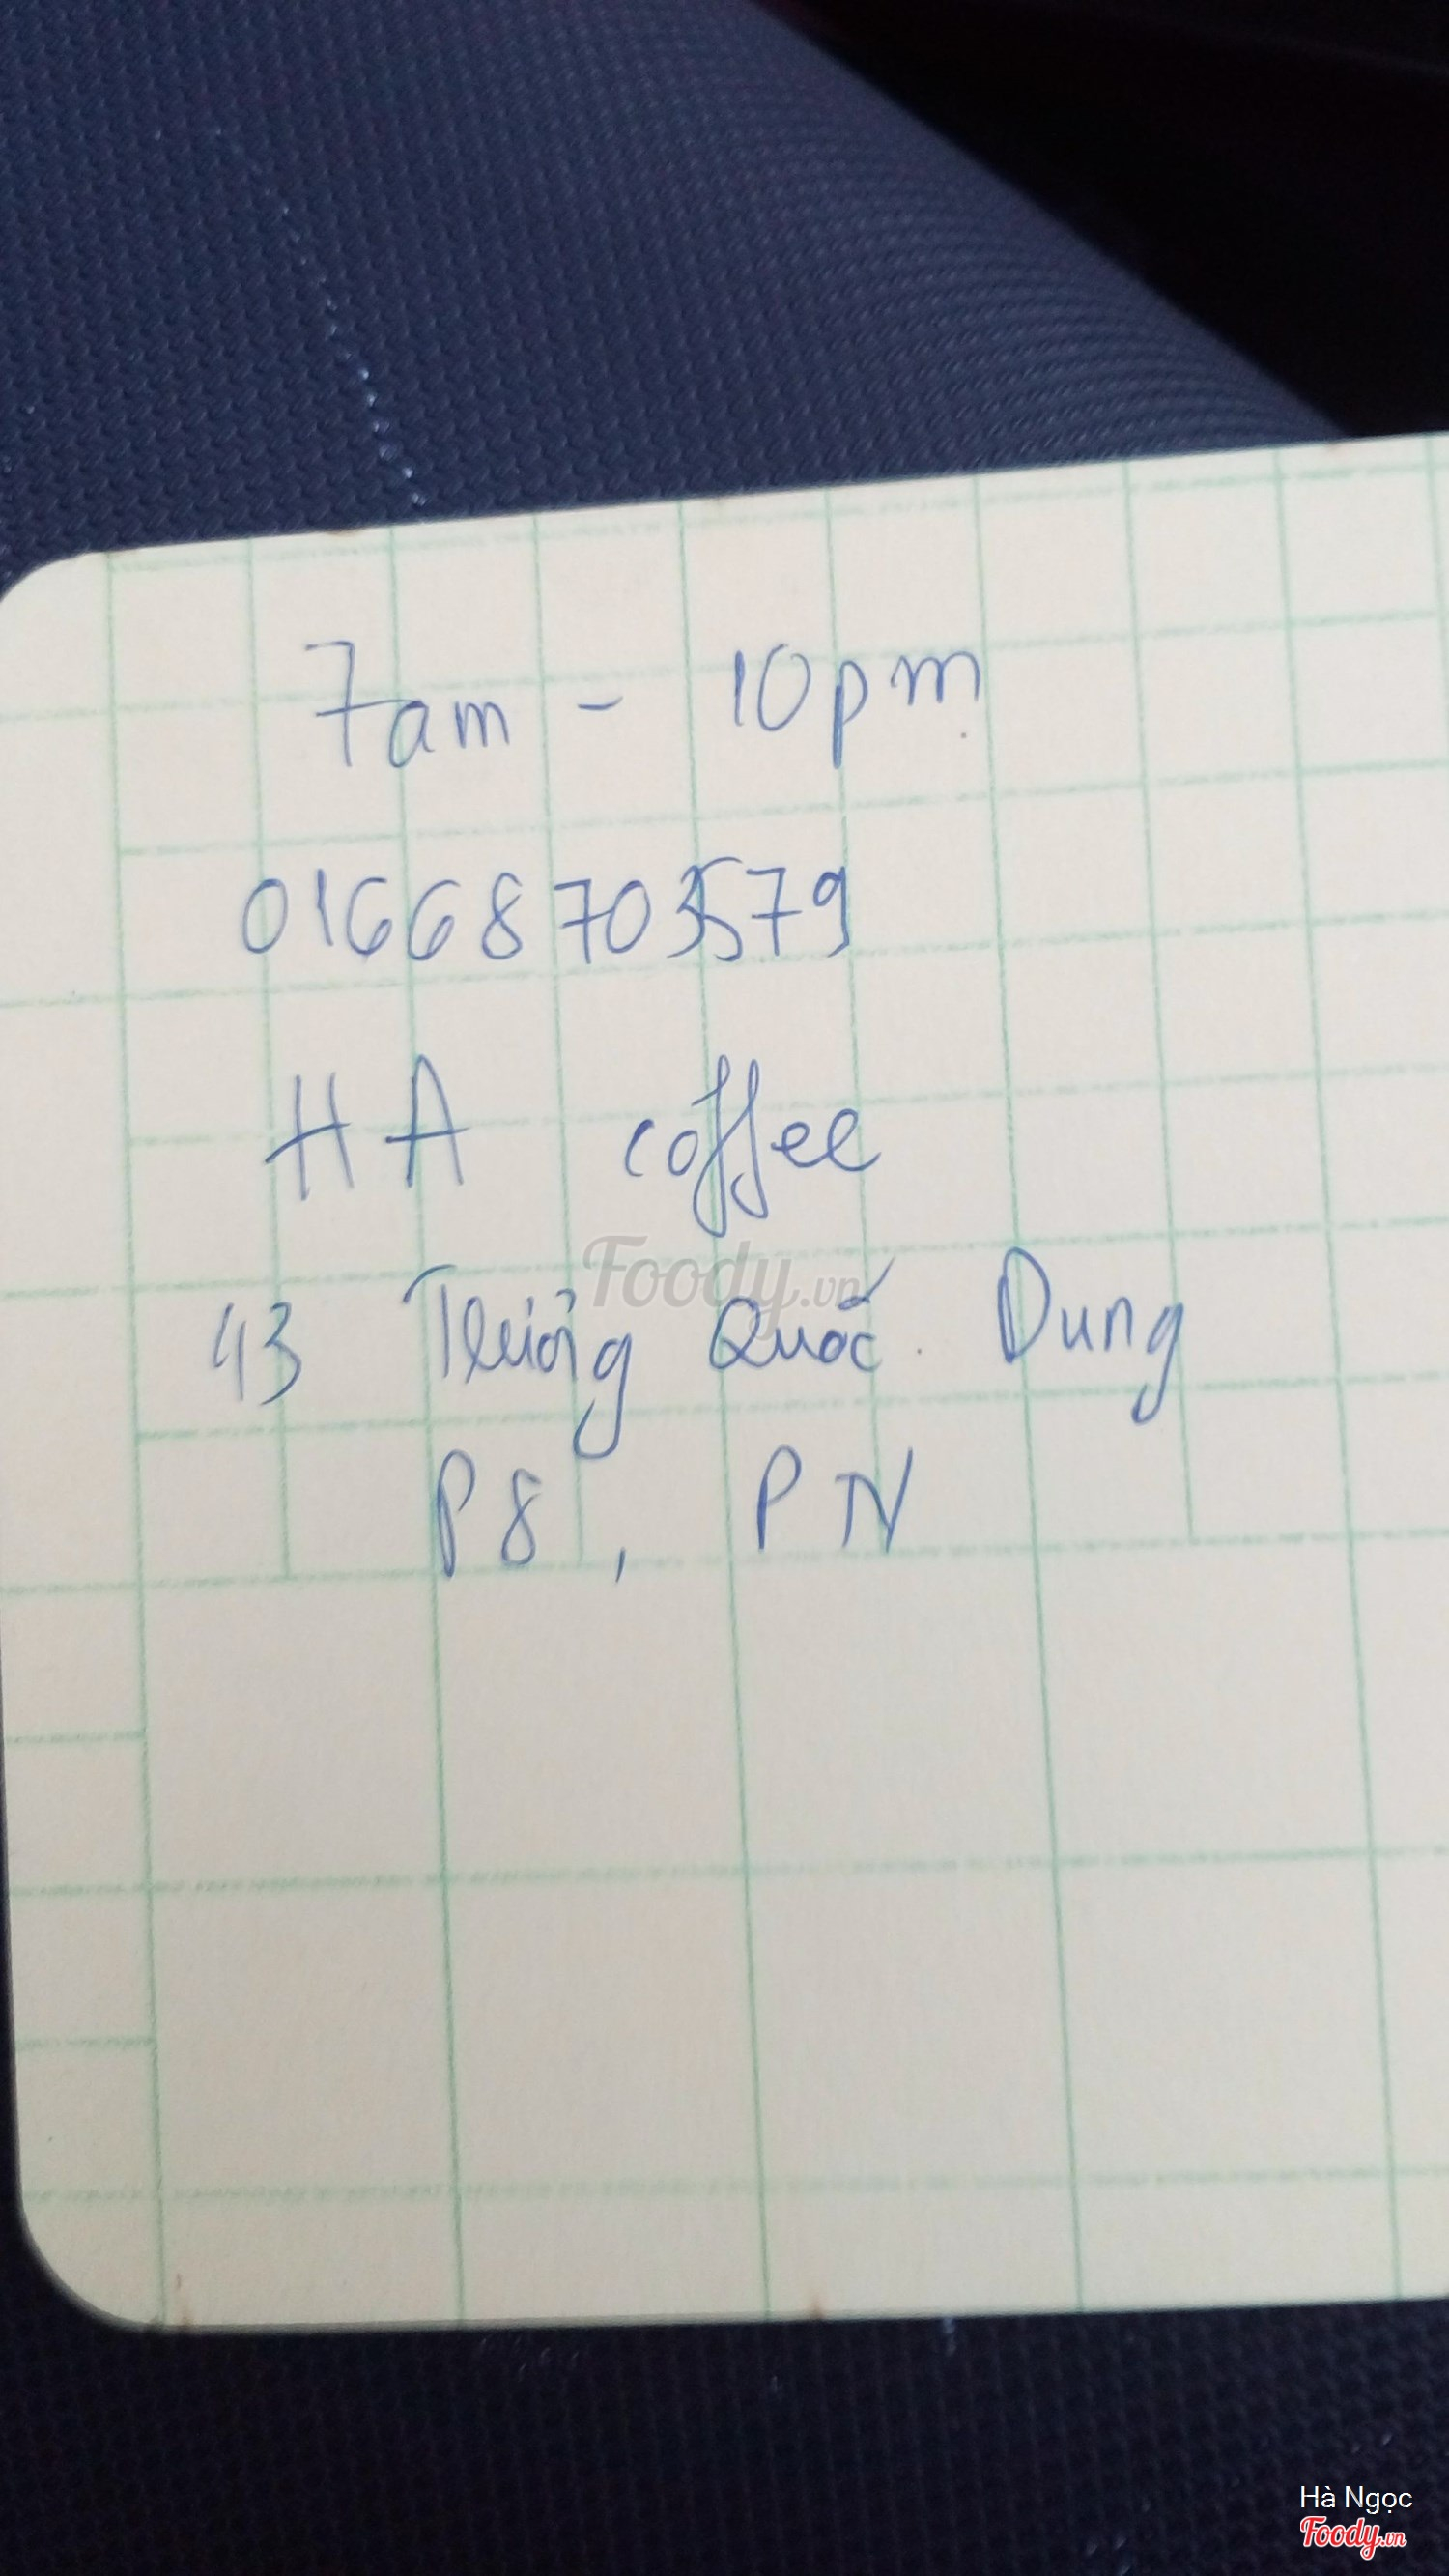 7am - 10pm
01668703579
HA coffee
Foody.vn
43 Trương Quốc Dung
P8, PN
Hà Ngọc
Foody.vn